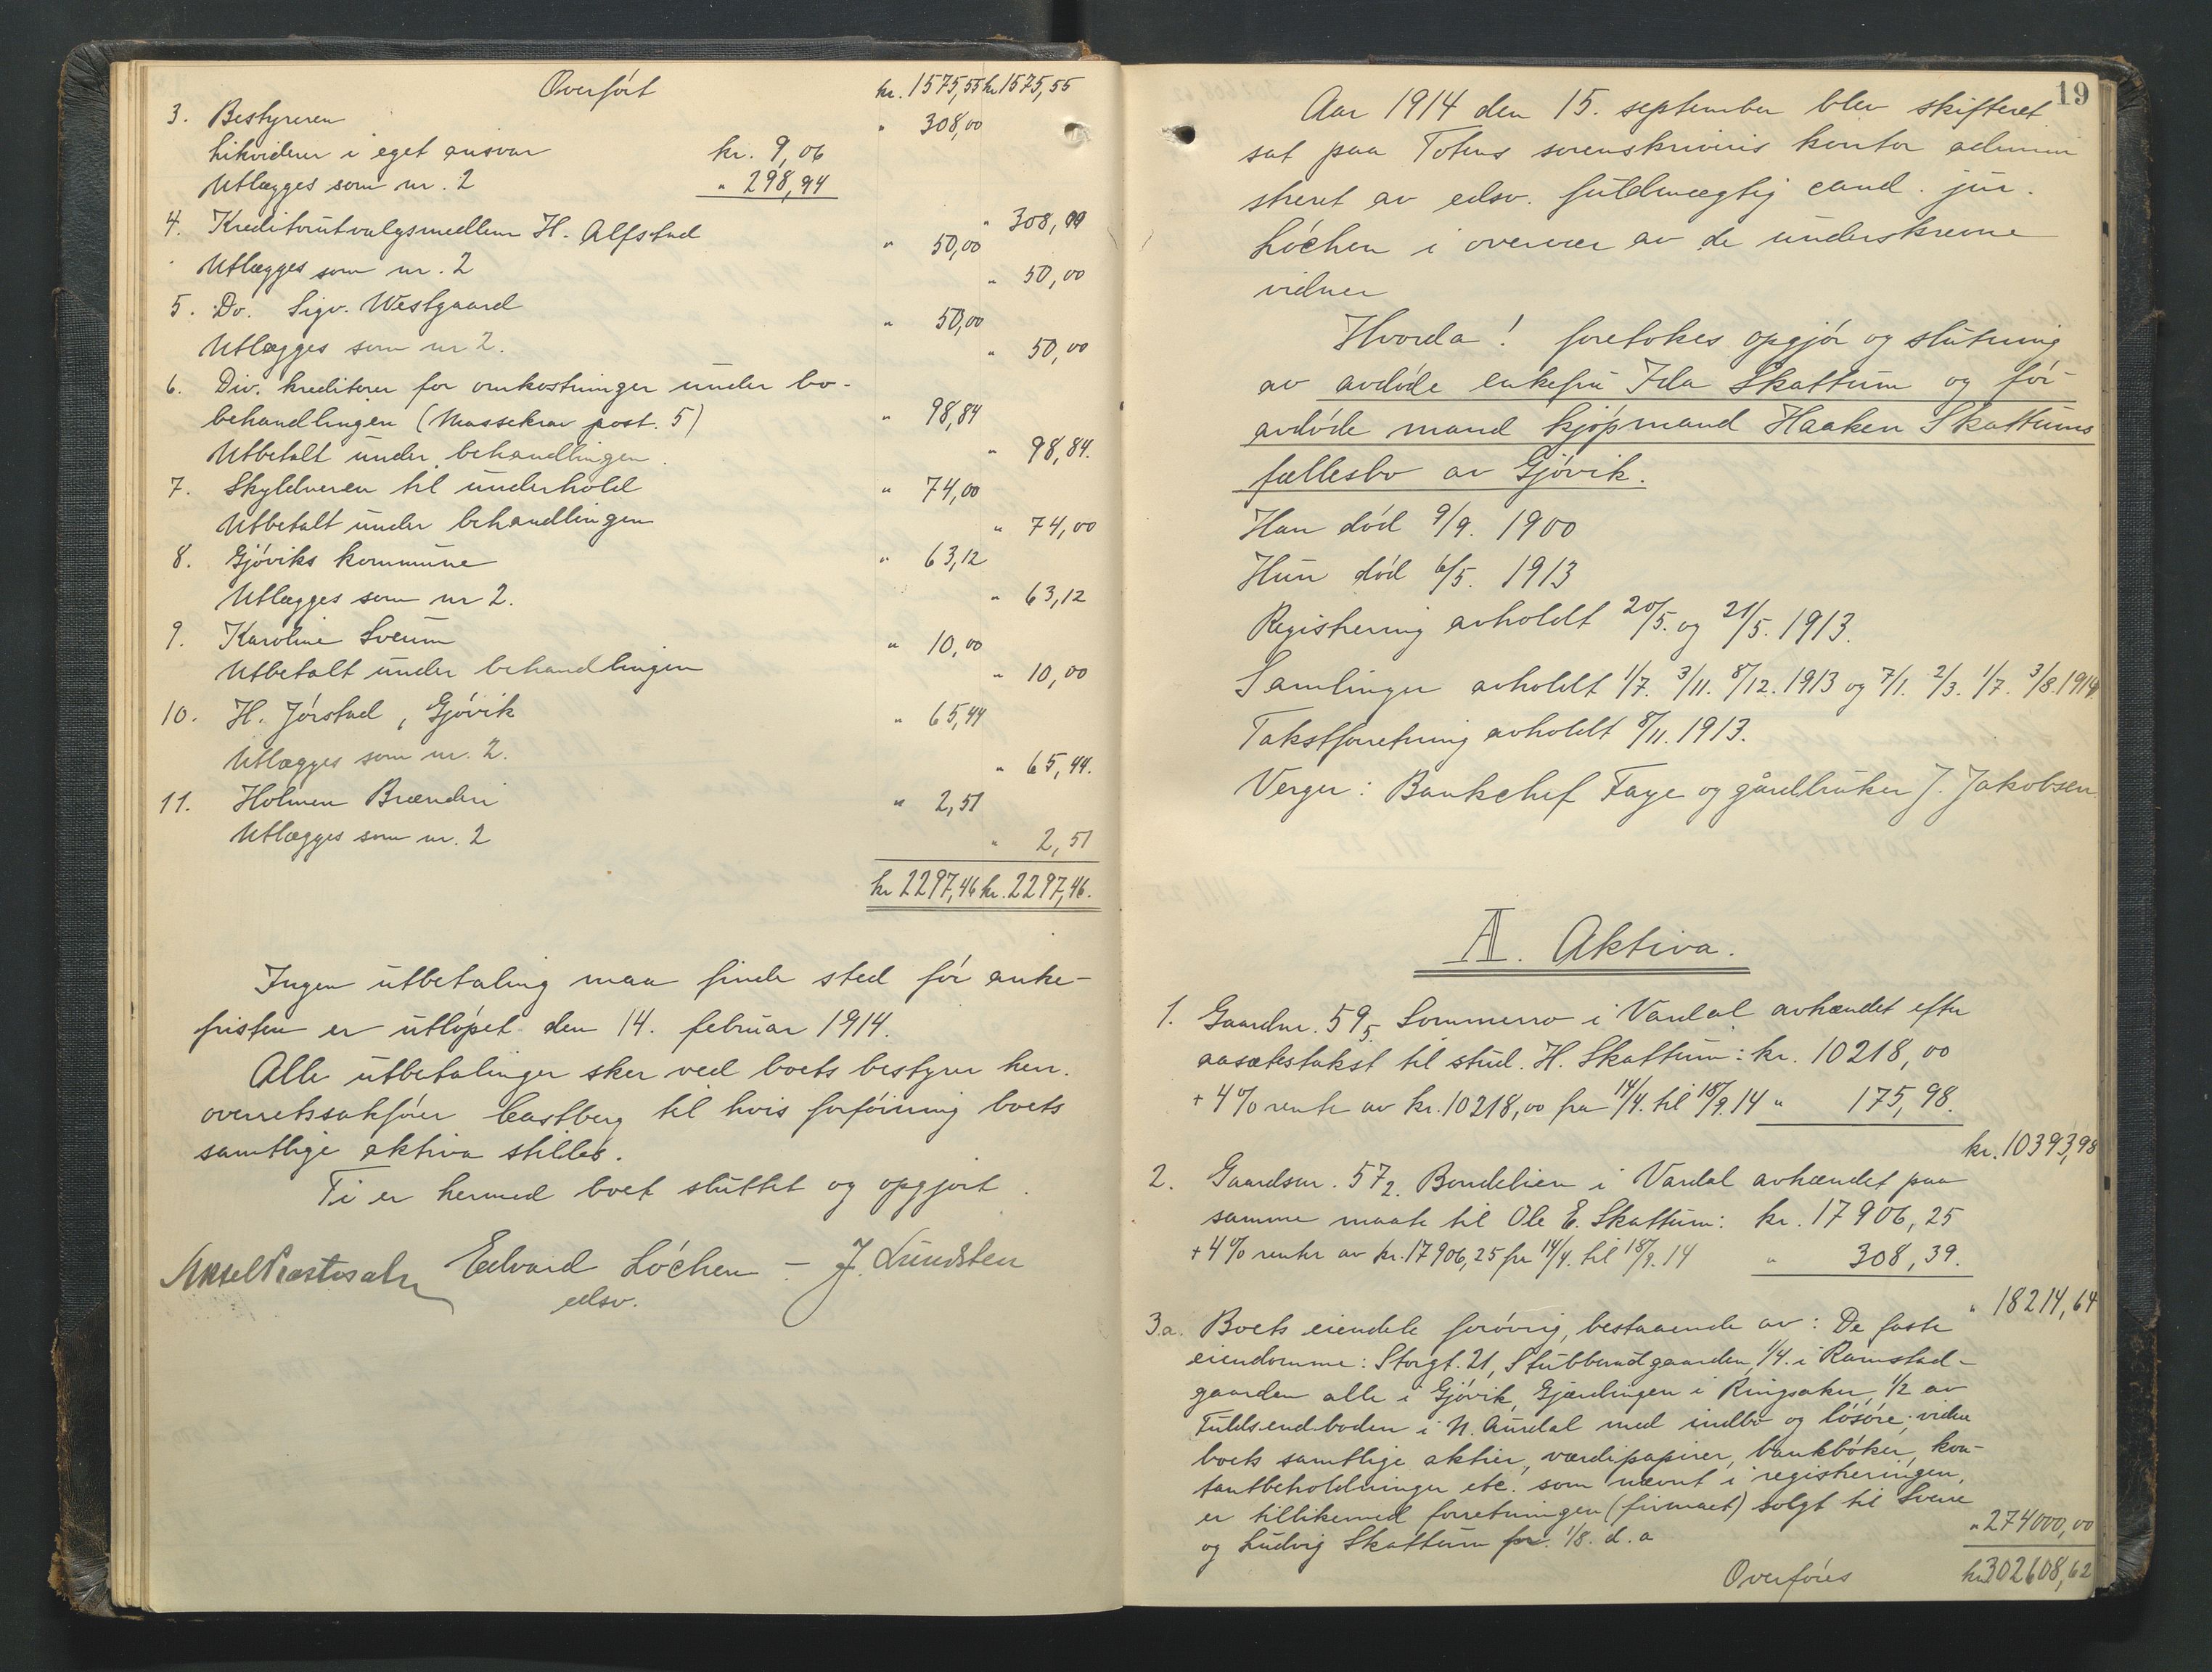 Overført kr. 1575,55 kr. 1575,55
3. Bestyreren " 308,00
Likviderer i eget ansvar kr. 9,06
Utlægges som nr. 2 " 298,94
" 308,00
4. Kreditorutvalgsmedlem H. Alfstad " 50,00
Utlægges som nr. 2 " 50,00
5. Do. Sigv. Westgaard " 50,00
Utlægges som nr 2. " 50,00
6. Div. kreditorer for omkostninger under bo-
behandlingen (Massekrav post. 5) " 98,84
Utbetalt under behandlingen. " 98,84.
7. Skyldneren til underhold " 74,00
Utbetalt under behandlingen " 74,00
8. Gjøviks kommune " 63,12
Utlægges som nr 2. " 63,12
9. Karoline Sveum " 10,00
Utbetalt under behandlingen " 10,00
10. H. Jørstad, Gjøvik " 65,44
Utlægges som nr. 2. " 65,44.
11. Holmen Brænderi " 2,51
Utlægges som nr. 2 " 2,51
kr 2297,46 kr. 2297,46.
Ingen utbetaling maa finde sted før anke-
fristen er utløpet den 14. februar 1914.
Alle utbetalinger sker ved boets bestyrer herr.
overretssakfører Castberg til hvis forføining boets
samtlige aktiva stilles.
Ti er hermed boet sluttet og opgjort.
Edvard Løchen – J. Lundsten
edsv.
19
Aar 1914 den 15. september blev skifteret
sat paa Totens sorenskriveris kontor admini
streret av edsv. fuldmægtig cand. jur.
Løchen i overvær av de underskrevne
vidner
Hvorda! foretokes opgjør og slutning
av avdøde enkefru Ida Skattum og før
avdøde mand kjøpmand Haaken Skattums
fællesbo av Gjøvik.
Han død 9/9. 1900
Hun død 6/5. 1913
Registrering avholdt 20/5. og 21/5. 1913.
Samlinger avholdt 1/7. 3/11. 8/12. 1913 og 7/1. 2/3. 1/7. 3/8. 1914
Takstforretning avholdt 8/11. 1913.
Verger: Bankchef Faye og gårdbruker J. Jakobsen.
A. Aktiva.
1. Gaardnr. 59,5 Sommerro i Vardal avhændet efter
aasætestakst til stud. H. Skattum: kr. 10218,00
+ 4% rente av kr. 10218,00 fra 14/4. til 18/9. 14 " 175,98.
kr. 10393,98
2. Gaardsnr. 57,2. Bondelien i Vardal avhændet paa
samme maate til Ole E. Skattum: kr. 17906,25
+ 4% renter av kr. 17906,25 fra 14/4. til 18/9. 14 " 308,39.
" 18214,64
3.a. Boets eiendele forøvrig, bestaaende av: De faste
eiendomme: Storgt. 21, Stubberudgaarden, 1/4. i Ramstad-
gaarden alle i Gjøvik, Gjærdingen i Ringsaker, 1/2 av
Fuldsendboden i N. Aurdal med indbo og løsøre; videre
boets samtlige aktier, værdipapirer, bankbøker, kon-
tantbeholdninger etc. som nævnt i registreringen,
er tillikemed forretningen (firmaet) solgt til Sverre
og Ludvig Skattum pr. 1/8. d. a " 274000,00
Overføres kr. 302608,62